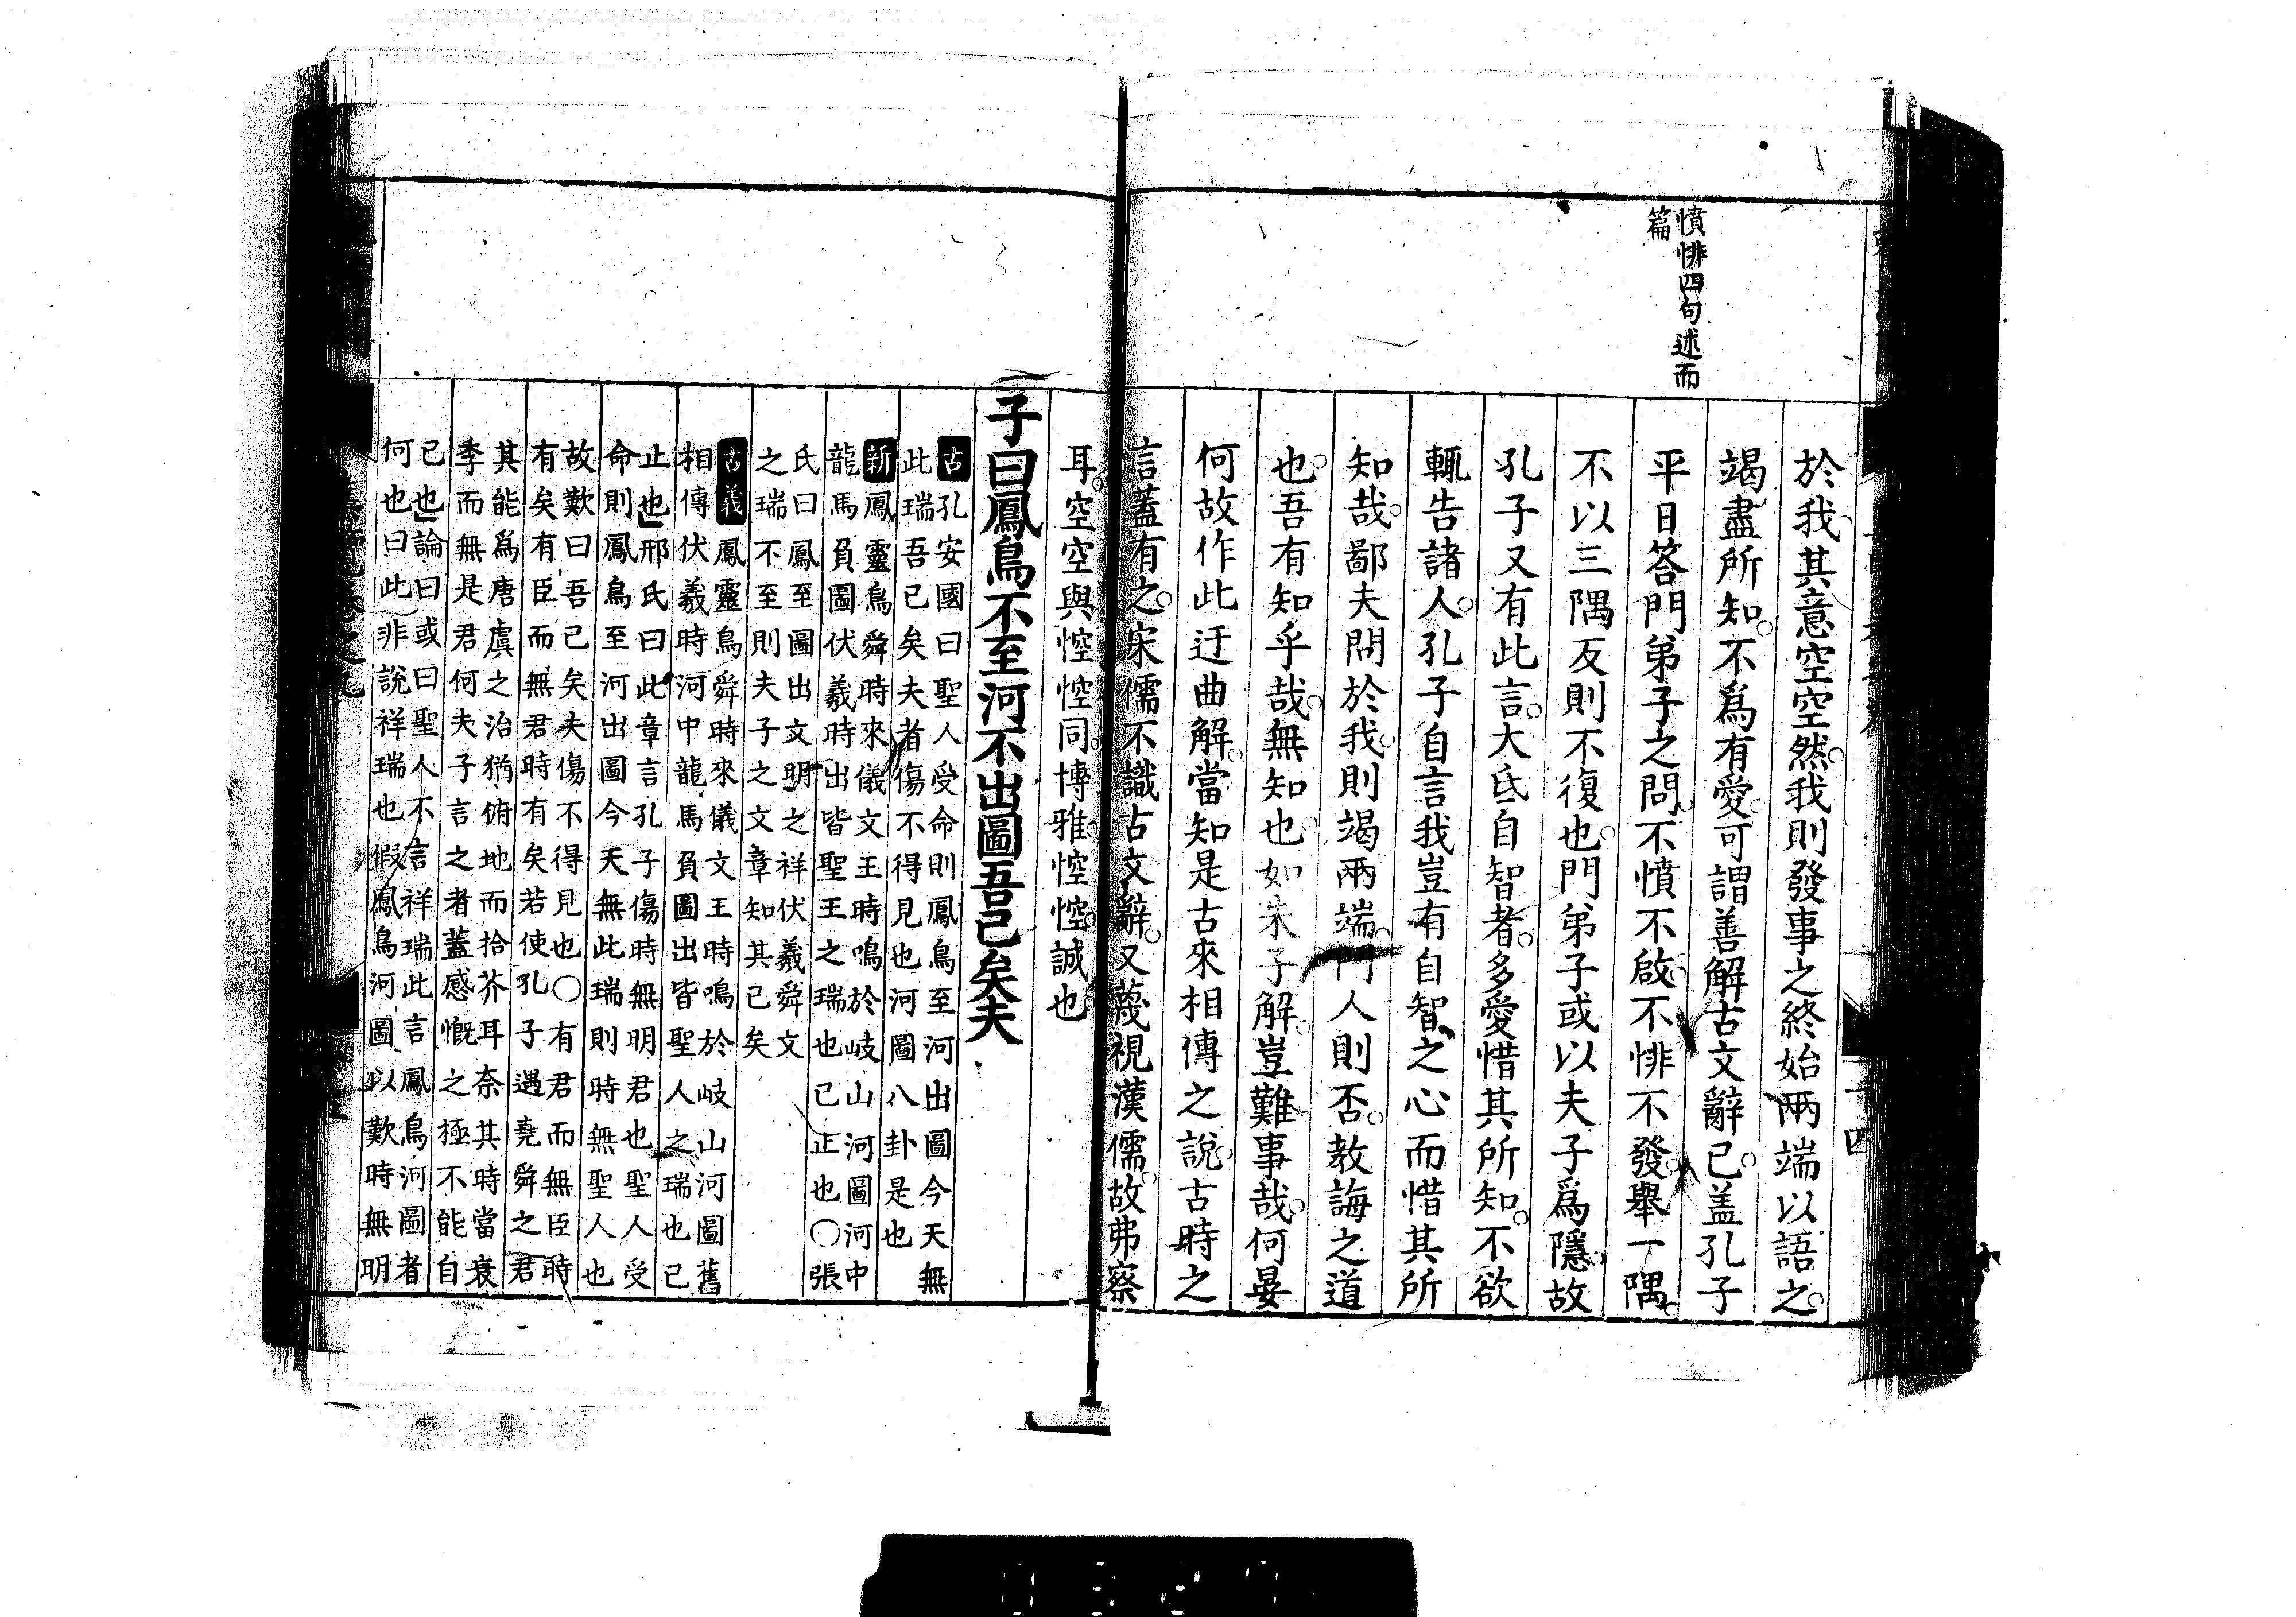 憤悱四句述而
篇
於我其意空空然我則發事之終始兩端以語之
竭盡所知不爲有愛可謂善解古文辭已蓋孔子
平日答門弟子之問不憤不啟不悱不發舉一隅
不以三隅反則不復也門弟子或以夫子爲隱故
孔子又有此言大氐自智者多愛惜其所知不欲
輒告諸人孔子自言我豈有自智之心而惜其所
知哉鄙夫問於我則竭兩端門人則否教誨之道
也吾有知乎哉無知也如朱子解豈難事哉何晏
何故作此迂曲解當知是古來相傳之說古時之
言蓋有之宋儒不識古文辭又蔑視漢儒故弗察
耳空空與悾悾同博雅悾悾誠也
子曰鳳鳥不至河不出圖吾已矣夫
古孔安國曰聖人受命則鳳鳥至河出圖今天無
此瑞吾已矣夫者傷不得見也河圖八卦是也
新鳳靈鳥舜時來儀文王時鳴於岐山河圖河中
龍馬負圖伏羲時出皆聖王之瑞也已止也〇張
氏曰鳳至圖出文明之祥伏羲舜文
之瑞不至則夫子之文章知其已矣
古義鳳靈鳥舜時來儀文王時鳴於岐山河圖舊
相傳伏羲時河中龍馬負圖出皆聖人之瑞也已
止也邢氏曰此章言孔子傷時無明君也聖人受
命則鳳鳥至河出圖今天無此瑞則時無聖人也
故歎曰吾已矣夫傷不得見也〇有君而無臣時
有矣有臣而無君時有矣若使孔子遇堯舜之君
其能爲唐虞之治猶俯地而拾芥耳奈其時當衰
季而無是君何夫子言之者蓋感慨之極不能自
已也論曰或曰聖人不言祥瑞此言鳳鳥河圖者
何也曰此非說祥瑞也假鳳鳥河圖以歎時無明